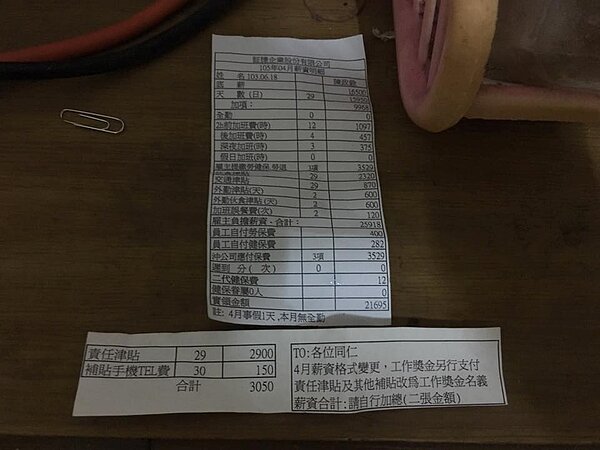 鉅捷企業股份有限公司
105年04月薪資明細
姓 名 103.06.18
底 薪 16500
天 數(日) 29 15950
加項: 9968
全勤 0 0
2h前加班費(時) 12 1097
後加班費(時) 4 457
深夜加班(時) 3 375
假日加班(時) 0 0
雇主提繳勞健保.勞退 3項 3529
交通津貼 29 2320
外勤津貼(天) 29 870
外勤伙食津貼(天) 2 600
加班誤餐費(次) 2 600
2 120
雇主負擔薪資、合計: 25918
員工自付勞保費 400
員工自付健保費 282
沖公司應付保費 3項 3529
遲到 分( 次) 0 0
二代健保費 12
健保眷屬0人 0
實領金額 21695
註: 4月事假1天,本月無全勤
責任津貼 29 2900
補貼手機TEL費 30 150
合計 3050
TO:各位同仁
4月薪資格式變更，工作獎金另行支付
責任津貼及其他補貼改為工作獎金名義
薪資合計:請自行加總(二張金額)